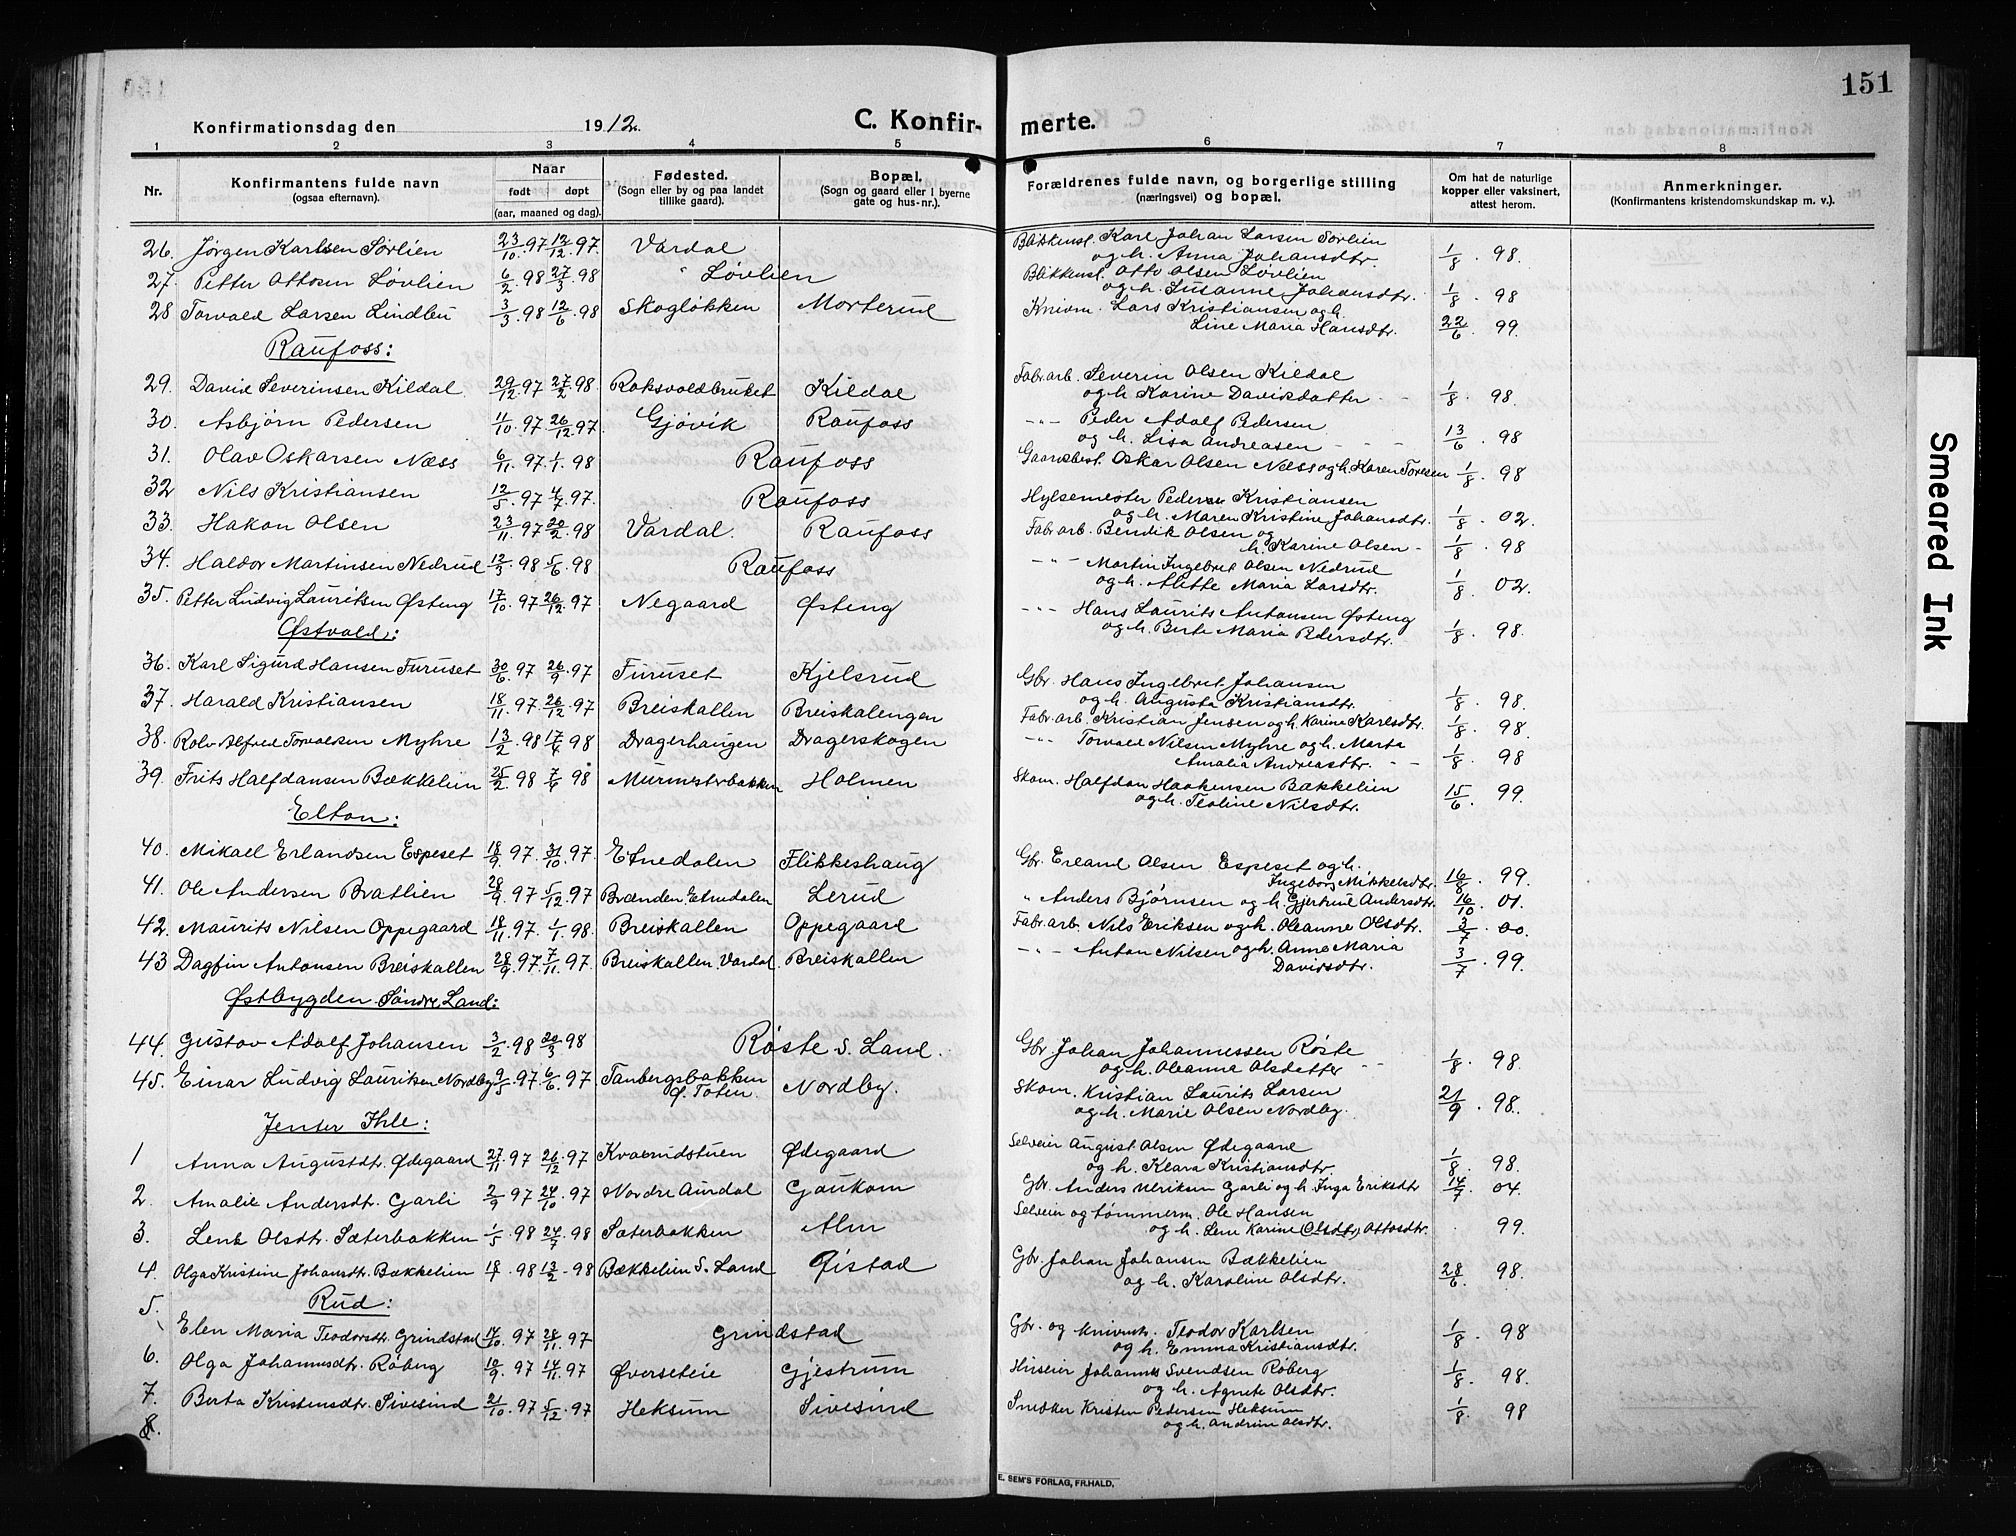 151
Konfirmationsdag den 1912.
C. Konfirmerte.
1 2 3 4 5 6 7 8
Nr.
Konfirmantens fulde navn (ogsaa efternavn).
Naar født døpt (aar, maaned og dag).
Fødested. (Sogn eller by og paa landet tillike gaard).
Bopæl. (Sogn og gaard eller i byerne gate og hus-nr.).
Forældrenes fulde navn, og borgerlige stilling (næringsvei) og bopæl.
Om hat de naturlige kopper eller vaksinert, attest herom.
Anmerkninger. (Konfirmantens kristendomskundskap m. v.).
26. Jørgen Karlsen Sørlien 23/10.97 12/12.97 Vardal Bakkensl. Karl Johan Larsen Sørlien og h. Anna Johansdtr. 1/8. 98.
27. Petter Ottosen Løvlien 6/2.98 27/3.98 " Løvlien Bakkensl. Otto Olsen Løvlien og h. Susanne Johansdtr. 1/8. 98
28 Torvald Larsen Lindbu 3/3.98 12/6.98 Skogløkken Morterud Knivm. Lars Kristiansen og h. Line Maria Hansdtr. 22/6. 99.
Raufoss:
29. David Severinsen Kildal 29/12.97 27/2.98 Roksvoldbruket Kildal Fabr.arb. Severin Olsen Kildal og h. Karine Davidsdatter 1/8. 98.
30. Asbjørn Pedersen 11/10.97 26/12.97. Gjøvik Raufoss -"- Peder Adolf Pedersen og h. Lisa Andreasen 13/6. 98
31. Olav Oskarsen Næss 6/11.97 1/1.98 Raufoss Gaardbest. Oskar Olsen Næss og h. Karen Toresen 1/8. 98
32 Nils Kristiansen 12/5.97 4/7.97. Raufoss Hylsemester Peder Kristiansen og h. Maren Kristine Johansdtr. 1/8. 02.
33. Hakon Olsen 23/11.97 20/2.98 Vardal. Raufoss Fabr.arb. Bendik Olsen og h. Karine Olsen 1/8. 98
34. Haldor Martinsen Nedrud 12/3.98 5/6.98 Raufoss -"- Martin Ingebret Olsen Nedrud og h. Mette Maria Larsdtr. 1/8. 02.
35. Petter Ludvig Lauritsen Østeng 17/10.97 26/12.97 Negaard Østeng -"- Hans Laurits Antonsen Østeng og h. Berte Maria Pedersdtr. 1/8. 98.
Østvold:
36. Karl Sigurd Hansen Furuset 30/6.97 26/9.97 Furuset Kjelsrud Gbr. Hans Ingebret Johansen og h. Augusta Kristiansdtr. 1/8. 98.
37. Harald Kristiansen 18/11.97 26/12.97 Breiskallen Breiskalengen Fabr.arb. Kristian Jensen og h. Karine Karlsdtr. 1/8. 98.
38. Rolv Alfred Torvaldsen Myhre 13/2.98 17/4.98 Dragerhaugen Dragerskogen -"- Torvald Nilsen Myhre og h. Marta Amalia Andreasdtr. 1/8. 98
39. Frits Halfdansen Bækkelien 25/2.98 7/6.98 Murmesterbakken Holmen Skom. Halfdan Haakensen Bækkelien og h. Teoline Nilsdtr. 15/6. 99.
Elton:
40. Mikael Erlandsen Espeset 18/9.97. 31/10.97. Etnedalen Flikkeshaug Gbr. Erland Olsen Espeset og h. Ingeborg Mikkelsdtr. 16/8. 99.
41. Ole Andersen Bratlien 28/9.97 5/12.97 Brænden Etnedalen Lerud " Anders Bjørnsen og h. Gjertrud Andersdtr. 16/10. 01.
42. Maurits Nilsen Oppegaard 18/11.97. 1/1.98. Breiskallen Oppegaard Fabr.arb. Nils Eriksen og h. Oleanne Olsdtr. 3/7. 00.
43 Dagfin Antonsen Breiskallen 28/9.97 7/11.97. Breiskallen. Vardal. Breiskallen -"- Anton Nilsen og h. Anne Maria Davidsdtr. 3/7. 99.
Østbygden Søndre Land:
44. Gustav Adolf Johansen 3/2.98 20/3.98 Røste S. Land. Gbr. Johan Johannessen Røste og h. Oleanna Olsdatter 1/8. 98.
45. Einar Ludvig Lauritsen Nordby 9/5.97 6/6.97 Tanbergsbakken Ø. Toten. Nordby. Skom. Kristian Laurits Larsen og h. Marie Olsen Nordby. 21/9. 98.
Jenter Ihle:
1 Anna Augustdtr. Ødegaard 27/11.97 26/12.97 Kvaernidstuen Ødegaard Selveier August Olsen Ødegaard og h. Klara Kristiansdtr. 1/8. 98.
2. Amalie Andersdtr. Garli 2/9.97 24/10.97 Nordre Aurdal Gaukom Gbr. Anders Ulriksen Garli og h. Inga Eriksdtr 14/7. 04.
3. Lena Olsdtr. Sæterbakken 1/5.98 24/7.98 Sæterbakken Alm Selveier og tømmerm. Ole Hansen og h. Lene Karine (Olsdtr) Ottosdtr. 99.
4. Olga Kristine Johansdtr. Bækkelien 18/1.98 13/2.98 Bækkelien S. Land Øistad Gbr. Johan Johansen Bækkelien og h. Karoline Olsdtr. 28/6. 98.
Rud:
5. Elen Maria Teodorsdtr. Grindstad 14/10.97 28/11.97 Grindstad Gbr. og knivsm. Teodor Karlsen og h. Emma Kristiansdtr. 1/8. 98
6. Olga Johannesdtr. Røberg 10/9.97 14/11.97 Øverseteie Gjestrum Huseier Johannes Svendsen Røberg og h. Agnete Olsdtr. 1/8. 98.
7. Berta Kristensdtr. Sivesind 21/10.97 5/12.97 Heksum Sivesind Snedker Kristen Pedersen Heksum og h. Andrine Olsdtr. 1/8. 98
8.
E. SEM'S FORLAG, FR.HALD.
Smeared Ink